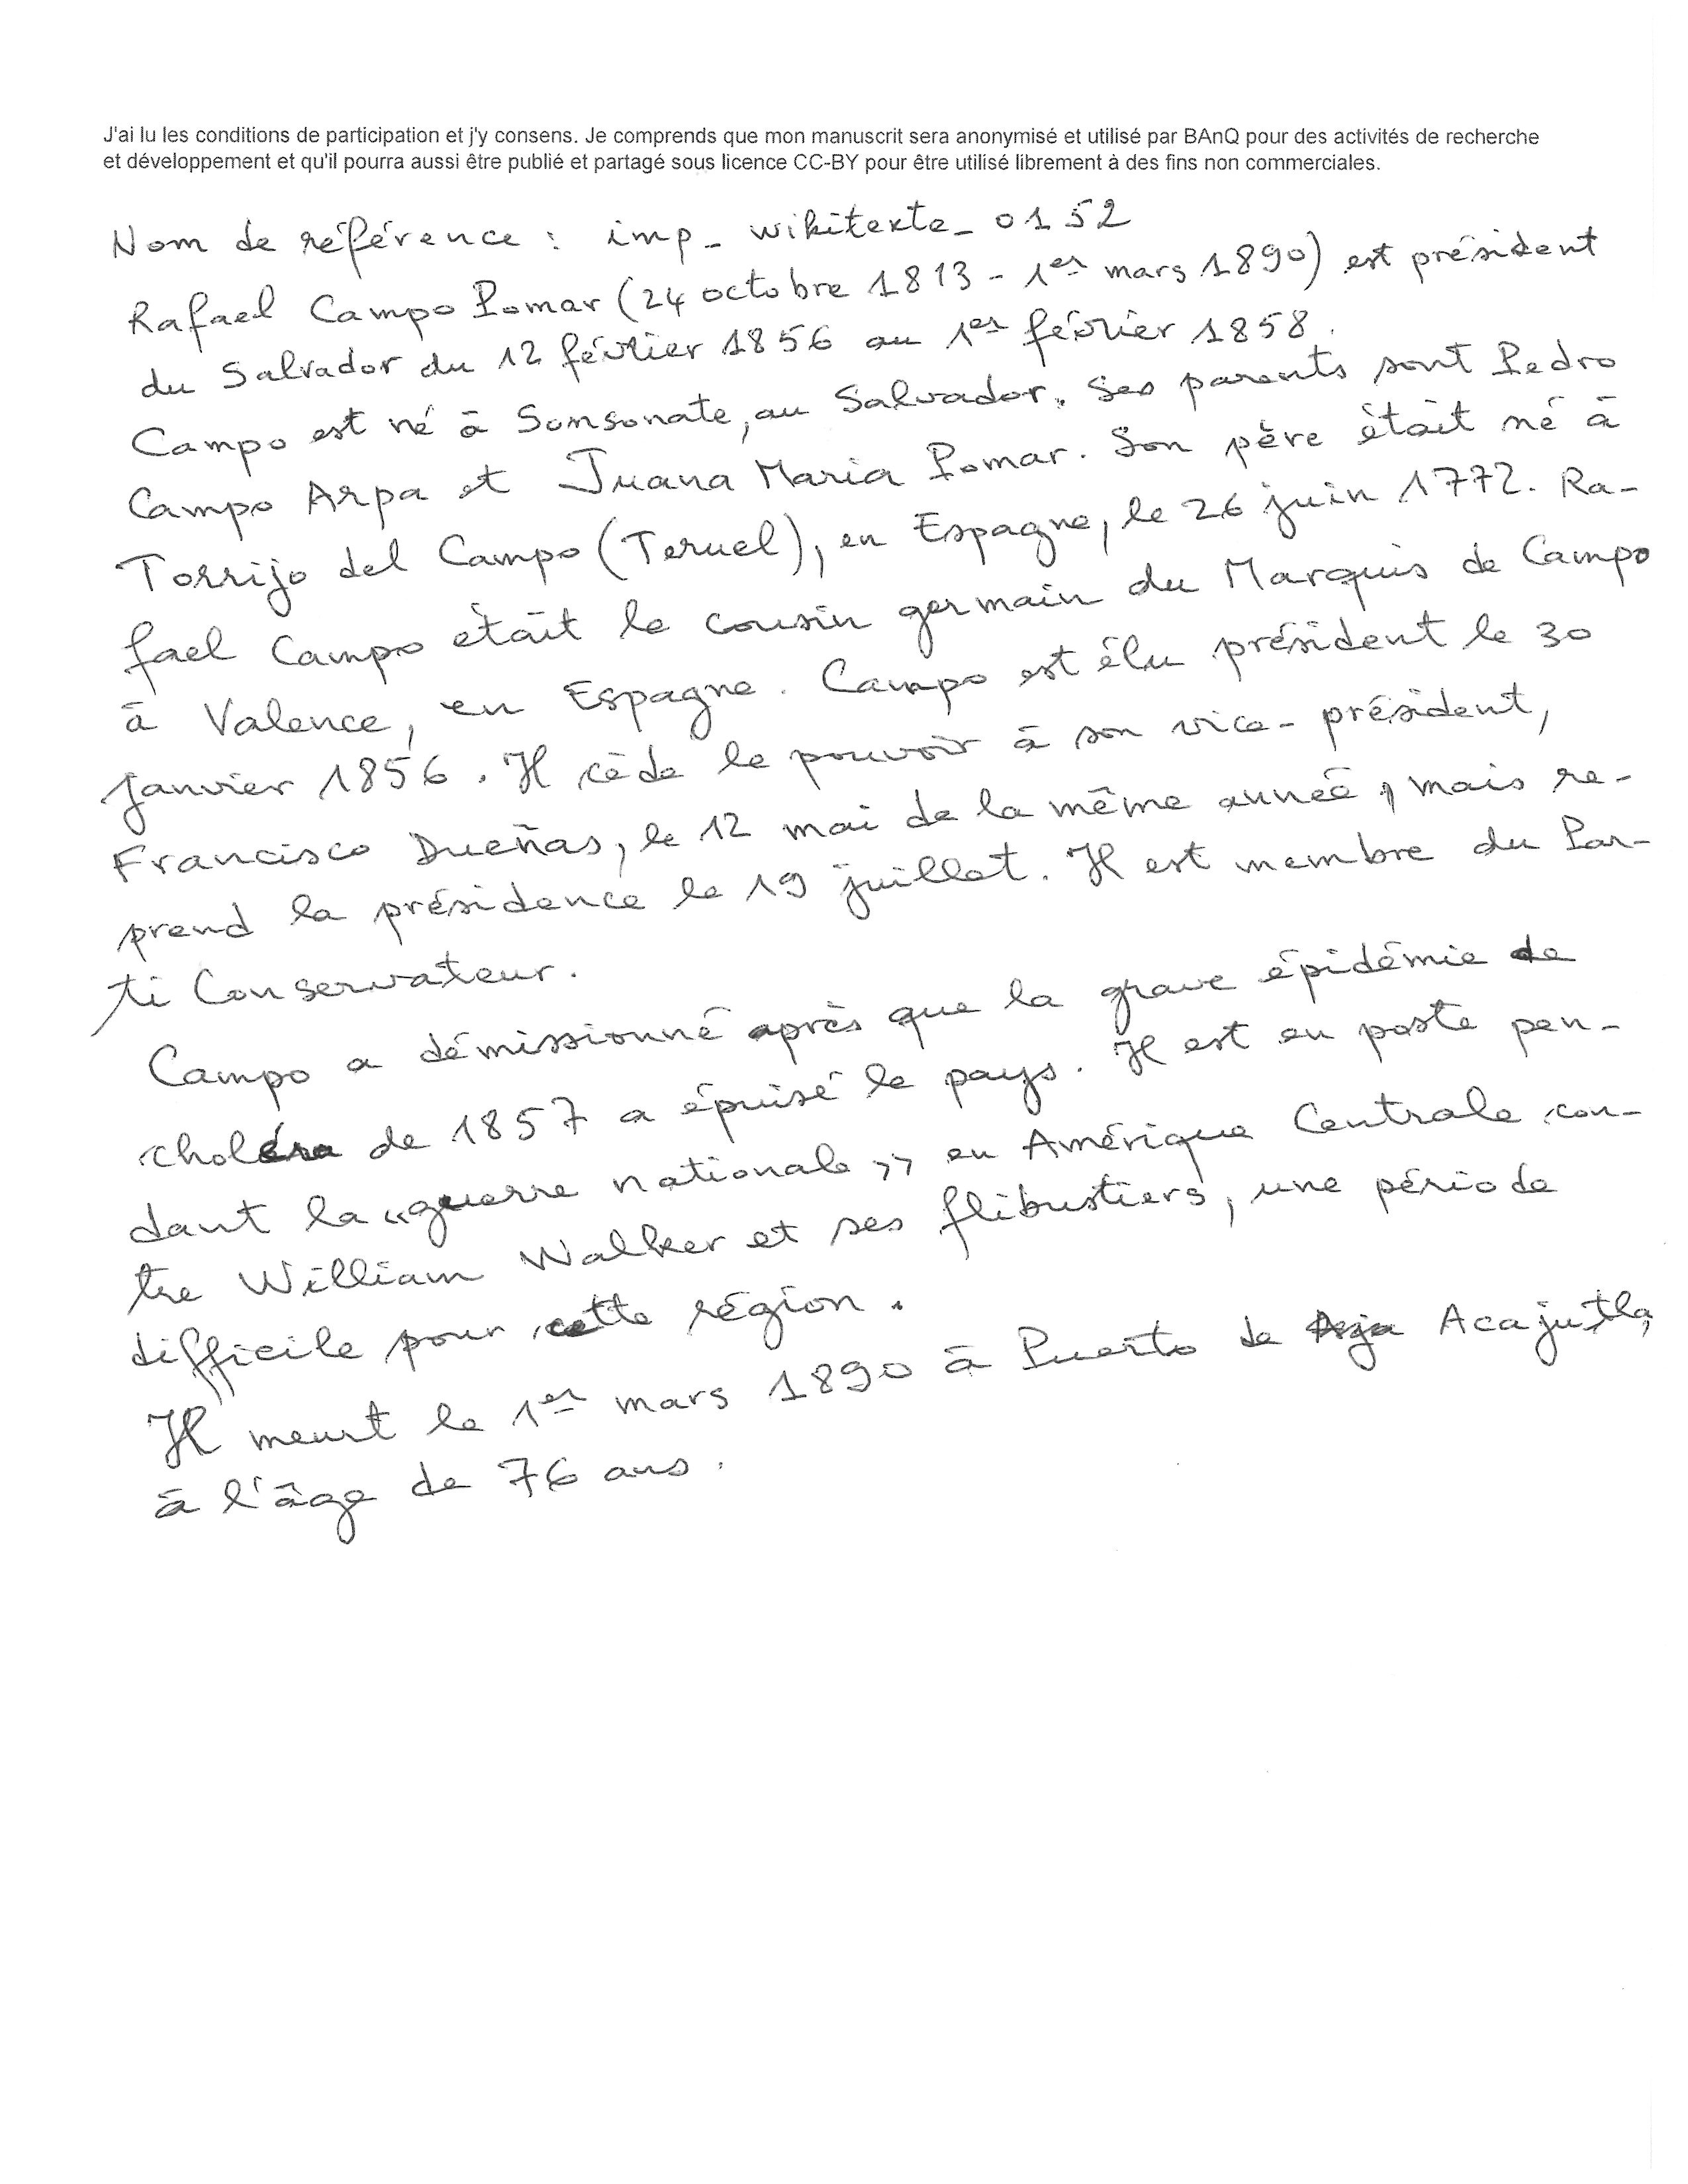 J'ai lu les conditions de participation et j'y consens. Je comprends que mon manuscrit sera anonymisé et utilisé par BAnQ pour des activités de recherche
et développement et qu'il pourra aussi être publié et partagé sous licence CC-BY pour être utilisé librement à des fins non commerciales.
Nom de référence : imp_wikitexte_0152
Rafael Campo Pomar (24 octobre 1813 - 1er mars 1890) est président
du Salvador du 12 février 1856 au 1er février 1858.
Campo est né à Sonsonate, au Salvador. Ses parents sont Pedro
Campo Arpa et Juana Maria Pomar. Son père était né à
Torrijo del Campo (Teruel), en Espagne, le 26 juin 1772. Ra-
fael Campo était le cousin germain du Marquis de Campo
à Valence, en Espagne. Campo est élu président le 30
janvier 1856. Il cède le pouvoir à son vice-président,
Francisco Dueñas, le 12 mai de la même année, mais re-
prend la présidence le 19 juillet. Il est membre du Par-
ti Conservateur.
Campo a démissionné après que la grave épidémie de
choléra de 1857 a épuisé le pays. Il est en poste pen-
dant la «guerre nationale» en Amérique Centrale con-
tre William Walker et ses flibustiers, une période
difficile pour cette région.
Il meurt le 1er mars 1890 à Puerto de Acajutla,
à l'âge de 76 ans.